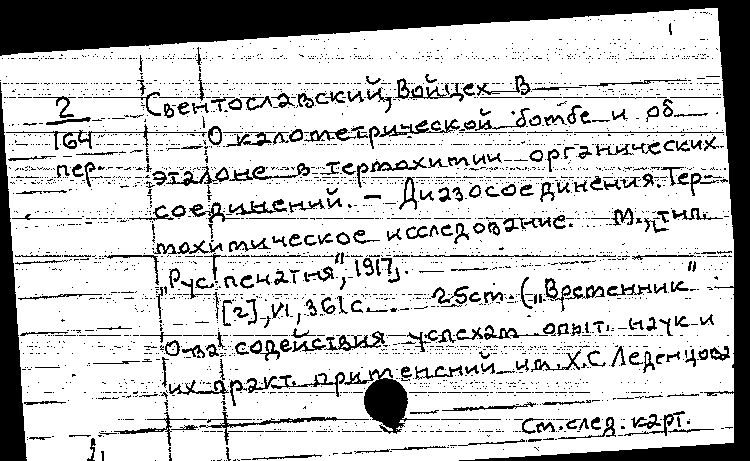 1
2
164
пер.
Свентославский, Войцех В
О калометрической бомбе и об
эталоне в термохимии органических
соединений. – Диазосоединения. Тер-
мохимическое исследование. М., тип.
„Рус. печатня", 1917.
[2], VI, 361 с. . 25 ст. („Временник"
О-ва содействия успехам опыт. наук и
их практ. применений им. Х.С. Леденцова
См. след. карт.